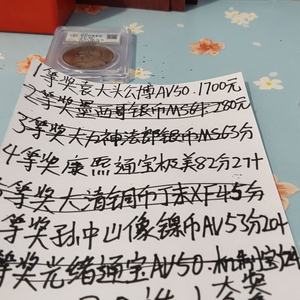 1等奖袁大头公博AV50.1700元
2等奖墨西哥银币MS61 280元
3等奖大方神法郎银币MS63分
4等奖康熙通宝极美82分27十
5等奖大清铜币丁未XF45分
等奖孙中山像镍币AV53分20十
等奖光绪通宝AV50.机制宝
大奖